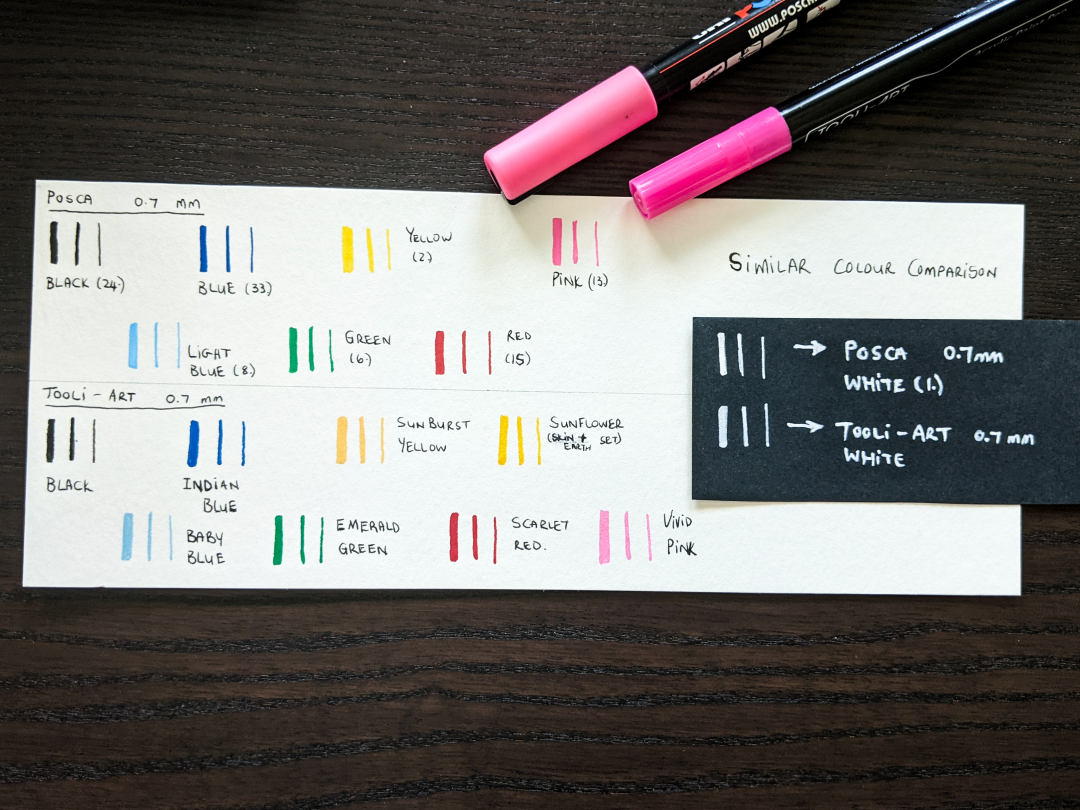 WWW.POSCA
TOOLI-ART
POSCA 0.7 MM
BLACK (24)
BLUE (33)
YELLOW
(2)
PINK (13)
SIMILAR COLOUR COMPARISON
LIGHT
BLUE (8)
GREEN
(6)
RED
(15)
POSCA 0.7mm
WHITE (1.)
TOOLI-ART 0.7mm
WHITE
TOOLI-ART 0.7 mm
BLACK
INDIAN
BLUE
SUNBURST
YELLOW
SUNFLOWER
(SKIN + EARTH SET)
BABY
BLUE
EMERALD
GREEN
SCARLET
RED.
VIVID
PINK